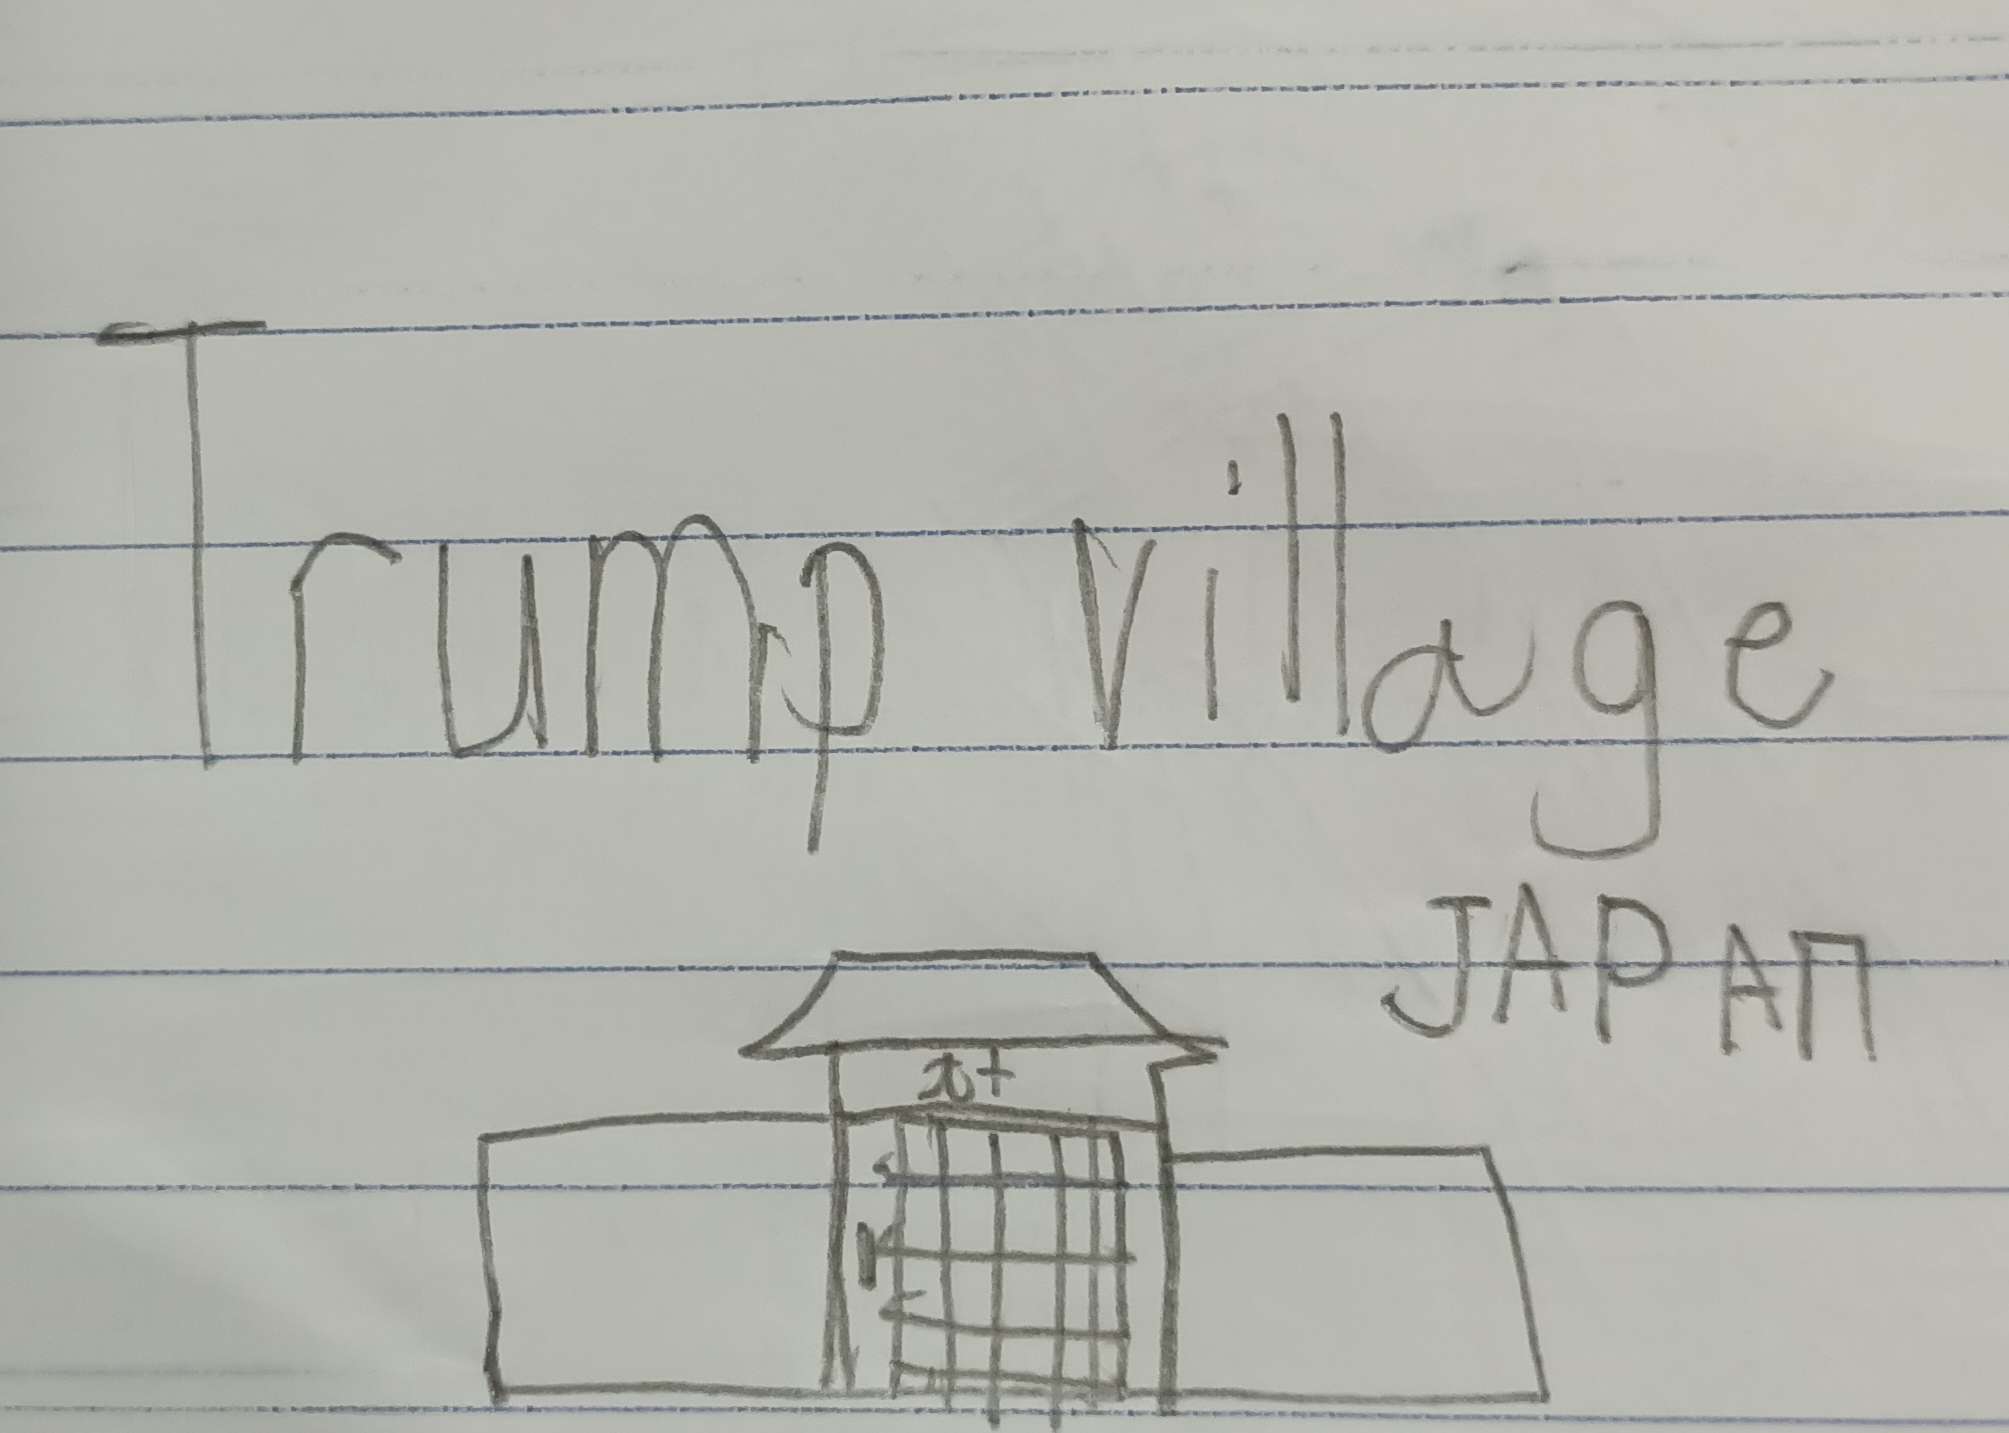 Trump village
JAPAN